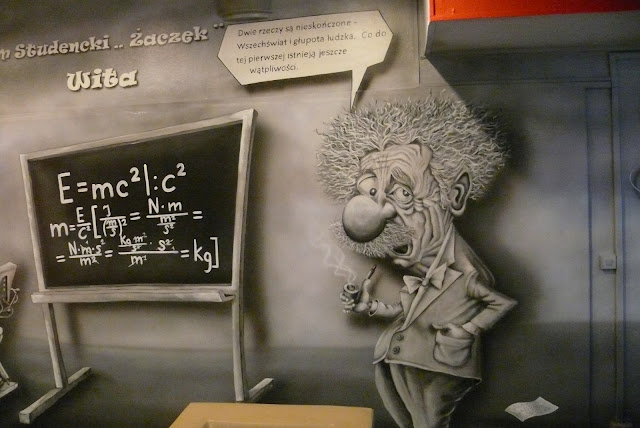 m Studencki „ Żaczek "
Wita
Dwie rzeczy są nieskończone -
Wszechświat i głupota ludzka. Co do
tej pierwszej istnieją jeszcze
wątpliwości.
E=mc²|:c²
m=E/c²[J/(m/s)²=N·m/(m²/s²)=
=N·m·s²/m²=(kg·m²/s²·s²)/m²=kg]